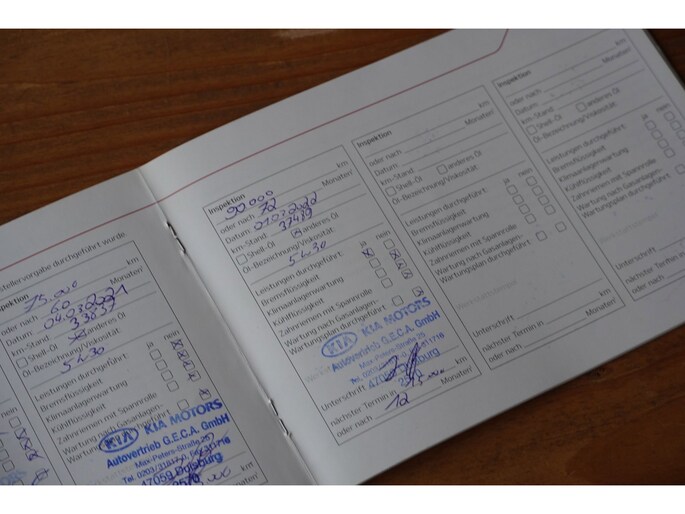 stellervorgabe durchgeführt wurde.
nspektion
75.000 km
oder nach 60 Monate/
Datum: 04.03.2021
km-Stand:
Shell-Öl anderes Öl
Öl-Bezeichnung/Viskosität:
5w30
Leistungen durchgeführt: ja nein
Bremsflüssigkeit
Klimaanlagenwartung
Kühlflüssigkeit
Zahnriemen mit Spannrolle
Wartung nach Gasanlagen-
Wartungsplan durchgeführt
KIA KIA MOTORS
Autovertrieb G.E.C.A. GmbH
Max-Peters-Straße 25
47059 Duisburg
Inspektion
90.000 km
oder nach 72 Monate/
Datum: 01.03.2022
km-Stand: 37439
Shell-Öl anderes Öl
Öl-Bezeichnung/Viskosität:
5w30
Leistungen durchgeführt: ja nein
Bremsflüssigkeit
Klimaanlagenwartung
Kühlflüssigkeit
Zahnriemen mit Spannrolle
Wartung nach Gasanlagen-
Wartungsplan durchgeführt
KIA KIA MOTORS
Autovertrieb G.E.C.A. GmbH
Max-Peters-Straße 25
47059 Duisburg
Unterschrift
nächster Termin in 15.000 km
oder nach 12 Monate/
Inspektion
km
oder nach Monate/
Datum:
km-Stand:
Shell-Öl anderes Öl
Öl-Bezeichnung/Viskosität:
Leistungen durchgeführt: ja nein
Bremsflüssigkeit
Klimaanlagenwartung
Kühlflüssigkeit
Zahnriemen mit Spannrolle
Wartung nach Gasanlagen-
Wartungsplan durchgeführt
Unterschrift
nächster Termin in km
oder nach Monate/
Inspektion
km
oder nach Monate/
Datum:
km-Stand:
Shell-Öl anderes Öl
Öl-Bezeichnung/Viskosität:
Leistungen durchgeführt: ja nein
Bremsflüssigkeit
Klimaanlagenwartung
Kühlflüssigkeit
Zahnriemen mit Spannrolle
Wartung nach Gasanlagen-
Wartungsplan durchgeführt
Unterschrift
nächster Termin in
oder nach